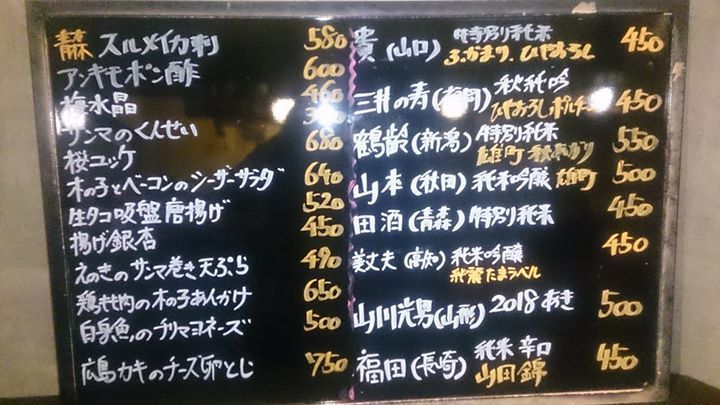 青森 スルメイカ刺 580
アンキモポン酢 600
梅水晶 460
サンマのくんせい
桜ユッケ 680
木の子とベーコンのシーザーサラダ 640
生タコ吸盤唐揚げ 520
揚げ銀杏 450
えのきのサンマ巻き天ぷら 490
鶏もも肉の木の子あんかけ 650
白身魚のプリマヨネーズ 500
広島カキのチーズ卵とじ 750
貴(山口) 特別純米 450
ふかまり、ひやおろし
三井の寿(福岡) 秋純吟 450
ひやおろしポルチーニ
鶴齢(新潟) 特別純米 550
雄町
山本(秋田) 純米吟醸 雄町 500
田酒(青森) 特別純米 450
美丈夫(高知) 純米吟醸 450
純麗たまラベル
山川光男(山形) 2018 あき 500
福田(長崎) 純米 辛口 450
山田錦